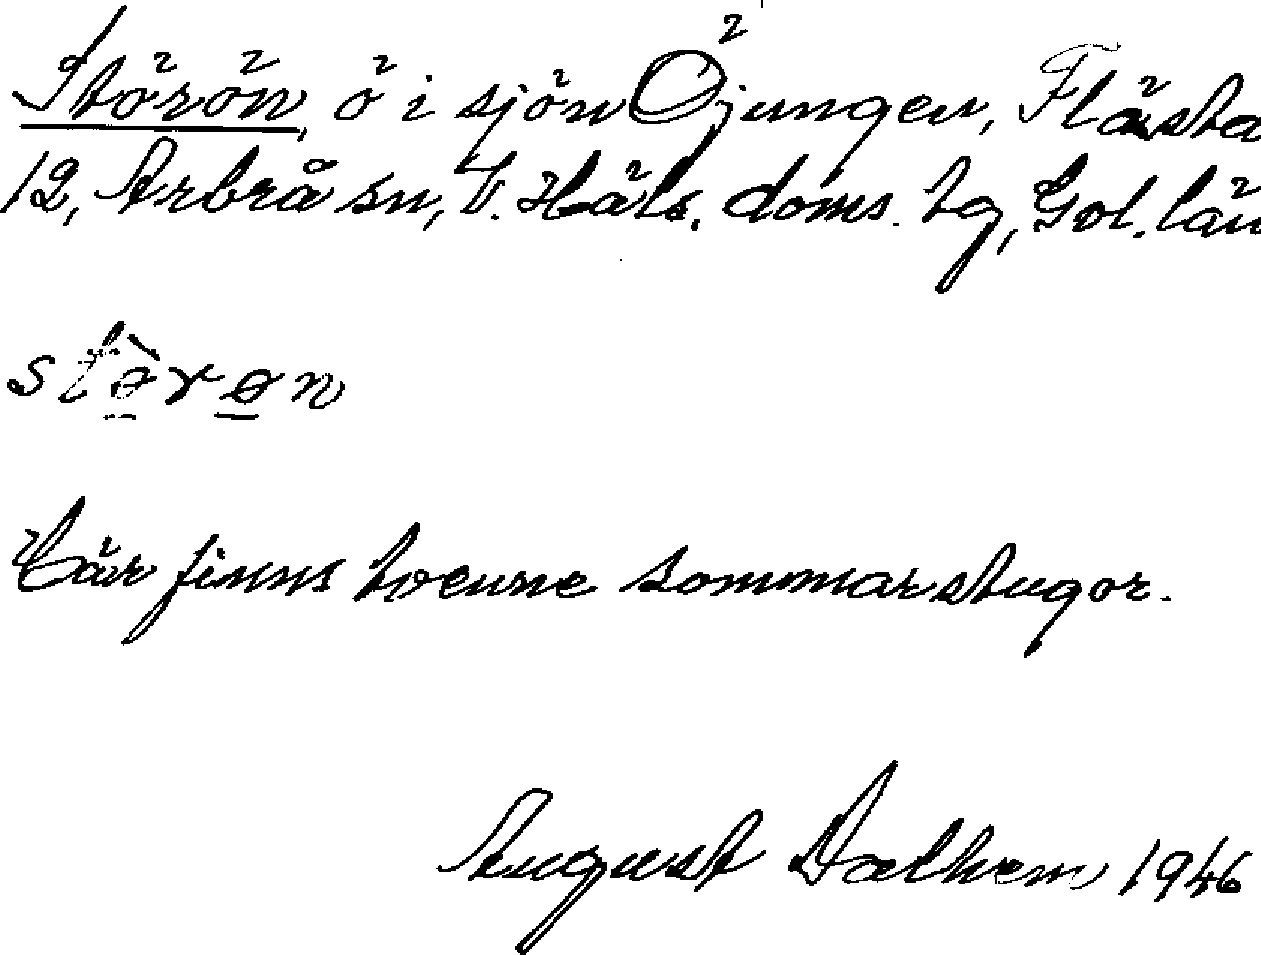 Störön, ö i sjön Öjungen, Flästa
12, Arbrå sn, V. Häls. doms. tg, Gol. län
stø̱̀rø̱n
Där finns tvenne sommarstugor.
August Dalhem 1946